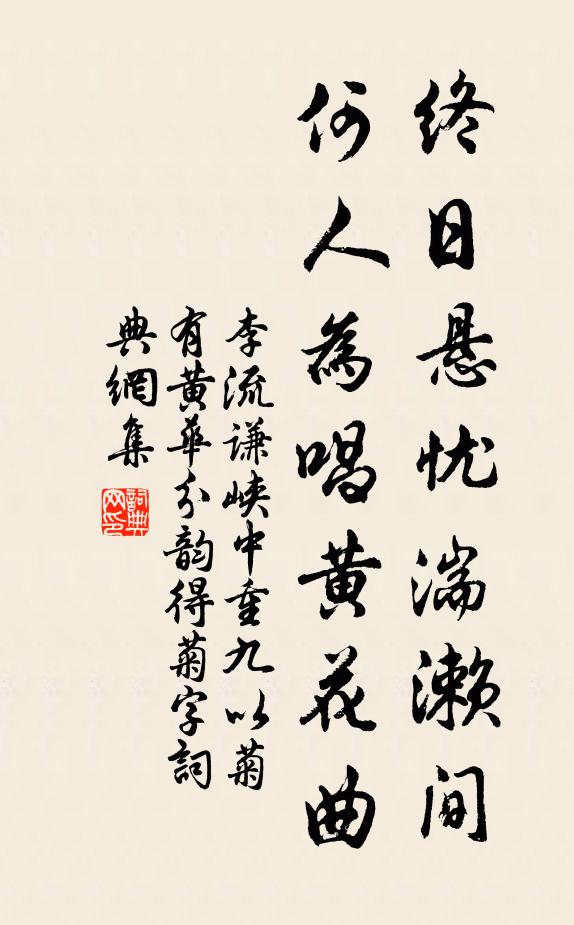 终日悬忧湍濑间
何人為唱黄花曲
李流謙峡中重九以菊
有黄華分韵得菊字詞
典網集
詞典网印